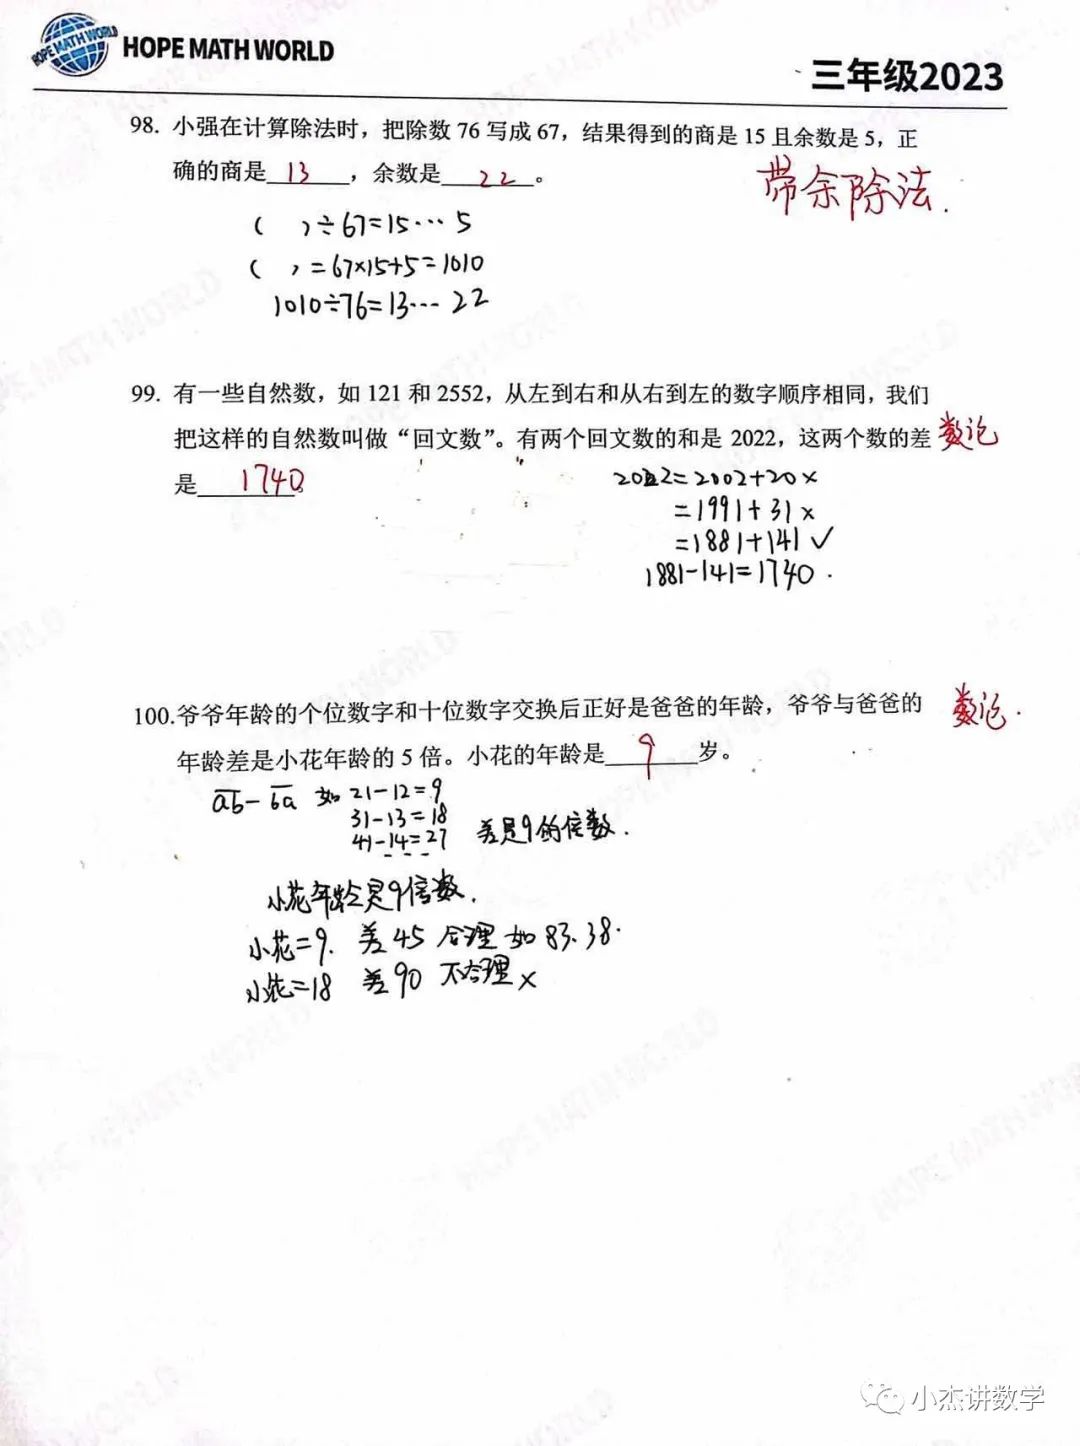 HOPE MATH WORLD
三年级2023
98. 小强在计算除法时，把除数 76 写成 67，结果得到的商是 15 且余数是 5，正
确的商是 13 ，余数是 22 。
带余除法.
( )÷67=15…5
( )=67×15+5=1010
1010÷76=13…22
99. 有一些自然数，如 121 和 2552，从左到右和从右到左的数字顺序相同，我们
把这样的自然数叫做“回文数”。有两个回文数的和是 2022，这两个数的差
数论
是 1740
2022=2002+20×
=1991+31×
=1881+141✓
1881-141=1740.
100.爷爷年龄的个位数字和十位数字交换后正好是爸爸的年龄，爷爷与爸爸的
数论.
年龄差是小花年龄的 5 倍。小花的年龄是 9 岁。
ab-ba 如 21-12=9
31-13=18
41-14=27 差是9的倍数.
小花年龄是9倍数.
小花=9. 差45 合理 如 83.38.
小花=18 差90 不合理×
小杰讲数学